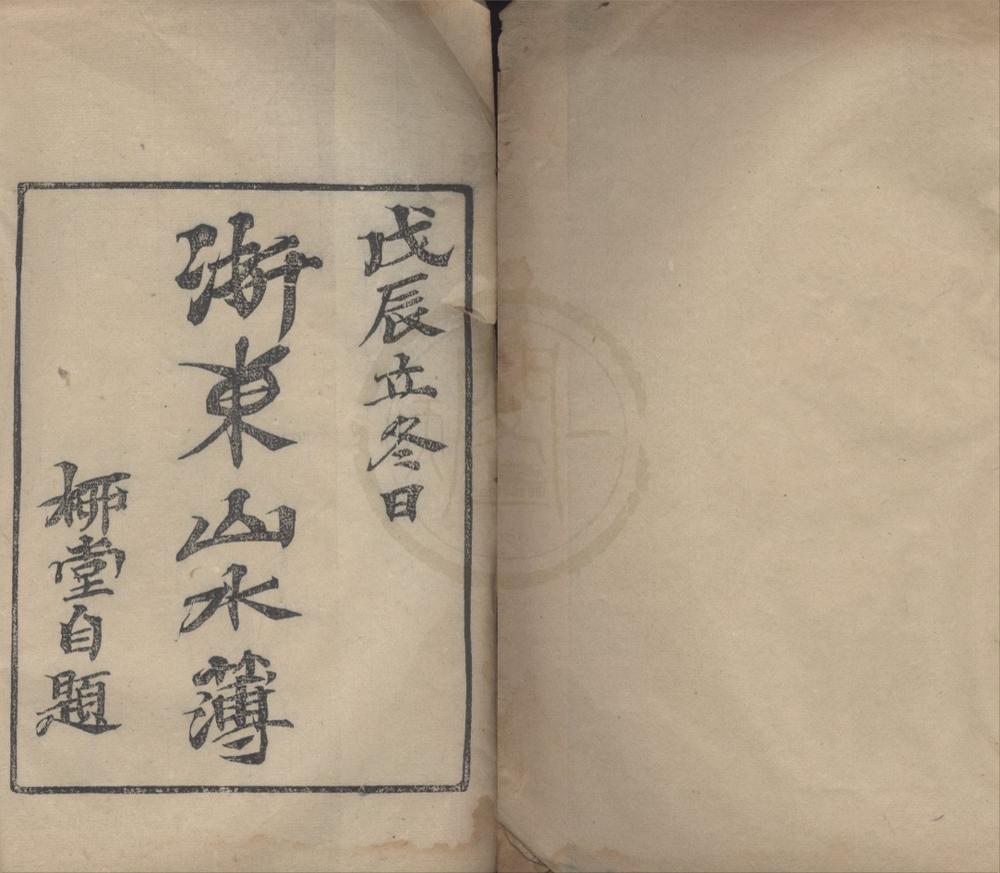 戊辰立冬日
浙東山水簿
柳堂自題